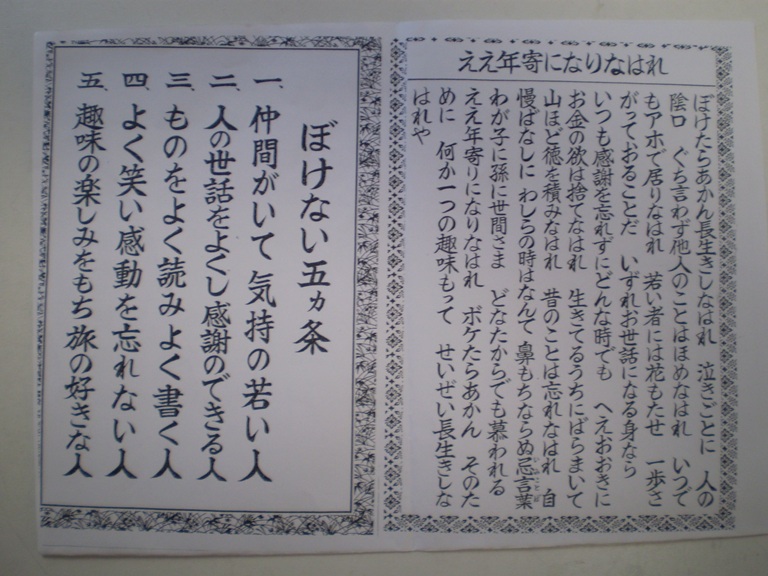 ええ年寄になりなはれ
ぼけたらあかん長生きしなはれ 泣きごとに 人の
陰口 ぐち言わず他人のことはほめなはれ いつて
もアホで居りなはれ 若い者には花もたせ 一歩さ
がっておることだ いずれお世話になる身なら
いつも感謝を忘れずにどんな時でも へえおおきに
お金の欲は捨てなはれ 生きてるうちにばらまいて
山ほど徳を積みなはれ 昔のことは忘れなはれ 自
慢ばなしに わしらの時はなんて 鼻もちならぬ忌言葉
わが子に孫に世間さま どなたからでも慕われる
ええ年寄りになりなはれ ボケたらあかん そのた
めに 何か一つの趣味もって せいぜい長生きしな
はれや
ぼけない五ヵ条
一、仲間がいて 気持の若い人
二、人の世話をよくし感謝のできる人
三、ものをよく読み よく書く人
四、よく笑い感動を忘れない人
五、趣味の楽しみをもち 旅の好きな人